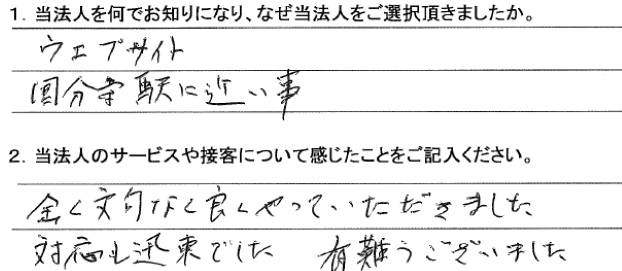 1. 当法人を何でお知りになり、なぜ当法人をご選択頂きましたか。
ウェブサイト
国分寺駅に近い事
2. 当法人のサービスや接客について感じたことをご記入ください。
全く文句なく良くやっていただきました
対応も迅速でした 有難うございました